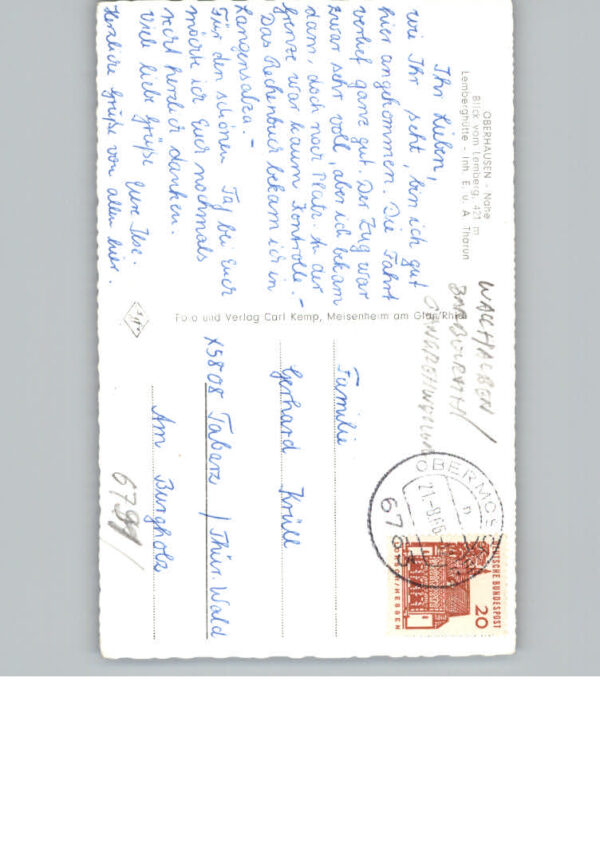 OBERHAUSEN - Nahe
Blick vom Lemberg, 421 m
Lemberghütte - Inh. E. u. A. Tharun
Ihr Lieben,
wie Ihr seht, bin ich gut
hier angekommen. Die Fahrt
verlief ganz gut. Der Zug war
zwar sehr voll, aber ich bekam
dann, doch noch Platz. An der
Grenze war kaum Kontrolle. -
Das Rechenbuch bekam ich in
Langensalza. -
Für den schönen Tag bei Euch
möchte ich Euch nochmals
recht herzlich danken.
Viele liebe Grüße Eure Ilse.
Herzliche Grüße von allen hier.
Foto und Verlag Carl Kemp, Meisenheim am Glan/Rhld
WALHALBEN/
OBERMOS
21.-9.66
DEUTSCHE BUNDESPOST
20
/HESSEN
Familie
Gerhard Krüll
X5808 Tabarz / Thür. Wald
Am Burgholz
6799/